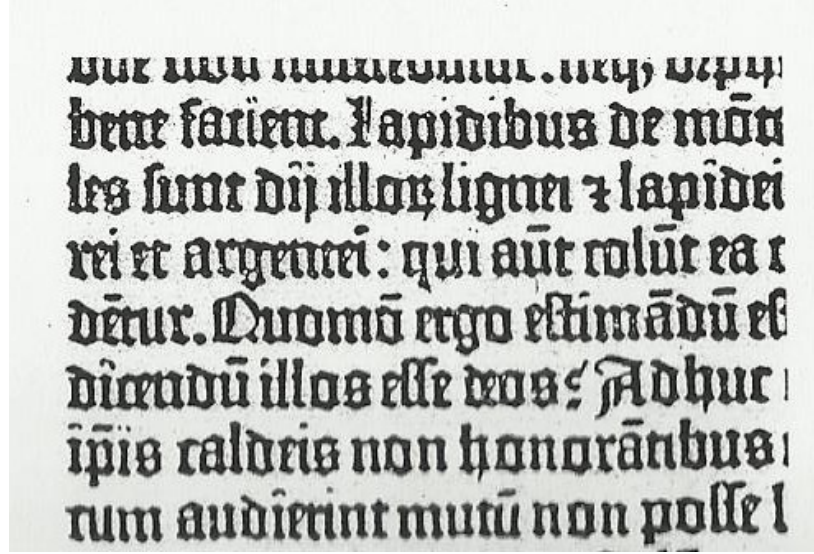 due non miserebuntur. neq;
bene facient. Lapidibus de mōti
les sunt dij illoꝝ lignei ⁊ lapidei
rei et argentei: qui aūt colūt ea c
dētur. Quomō ergo estimādū est
dicendū illos esse deos? Adhuc
ip̄is caldeis non honorātibus
cum audierint mutū non posse l